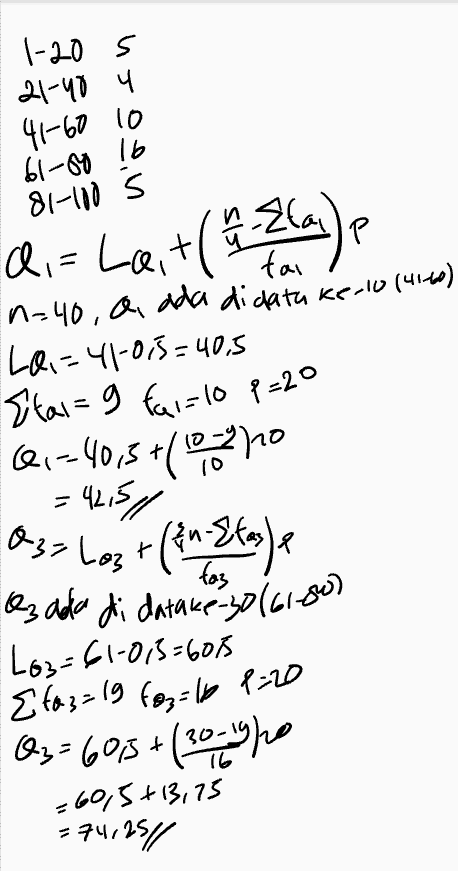 1-20 5
21-40 4
41-60 10
61-80 16
81-100 5
Q₁ = L_Q₁ + ((n/4 - Σf_Q₁)/f_Q₁) P
n=40, Q₁ ada di data ke-10 (41-60)
L_Q₁ = 41-0,5 = 40,5
Σf_Q₁ = 9 f_Q₁ = 10 P=20
Q₁ = 40,5 + ((10-9)/10) 20
= 42,5 //
Q₃ = L_Q₃ + ((3/4 n - Σf_Q₃)/f_Q₃) P
Q₃ ada di data ke-30 (61-80)
L_Q₃ = 61-0,5 = 60,5
Σf_Q₃ = 19 f_Q₃ = 16 P=20
Q₃ = 60,5 + ((30-19)/16) 20
= 60,5 + 13,75
= 74,25 //